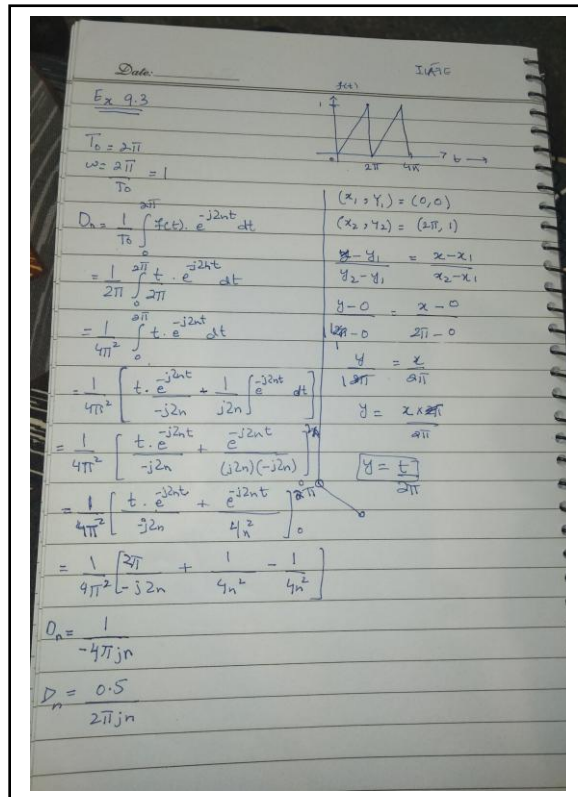 Date:
Ex 9.3
f(t)
1
0
2π
4π
t →
T₀ = 2π
ω = 2π/T₀ = 1
Dₙ = 1/T₀ ∫₀^2π f(t) · e^-j2nt dt
= 1/2π ∫₀^2π t/2π · e^-j2nt dt
= 1/4π² ∫₀^2π t · e^-j2nt dt
= 1/4π² [ t · e^-j2nt/-j2n + 1/j2n ∫ e^-j2nt dt ]
= 1/4π² [ t · e^-j2nt/-j2n + e^-j2nt/(j2n)(-j2n) ]₀^2π
= 1/4π² [ t · e^-j2nt/-j2n + e^-j2nt/4n² ]₀^2π
= 1/4π² [ 2π/-j2n + 1/4n² - 1/4n² ]
Dₙ = 1/-4πjn
Dₙ = 0.5/2πjn
(x₁, y₁) = (0, 0)
(x₂, y₂) = (2π, 1)
y - y₁/y₂ - y₁ = x - x₁/x₂ - x₁
y - 0/1 - 0 = x - 0/2π - 0
y/1 = x/2π
y = x/2π
y = t/2π